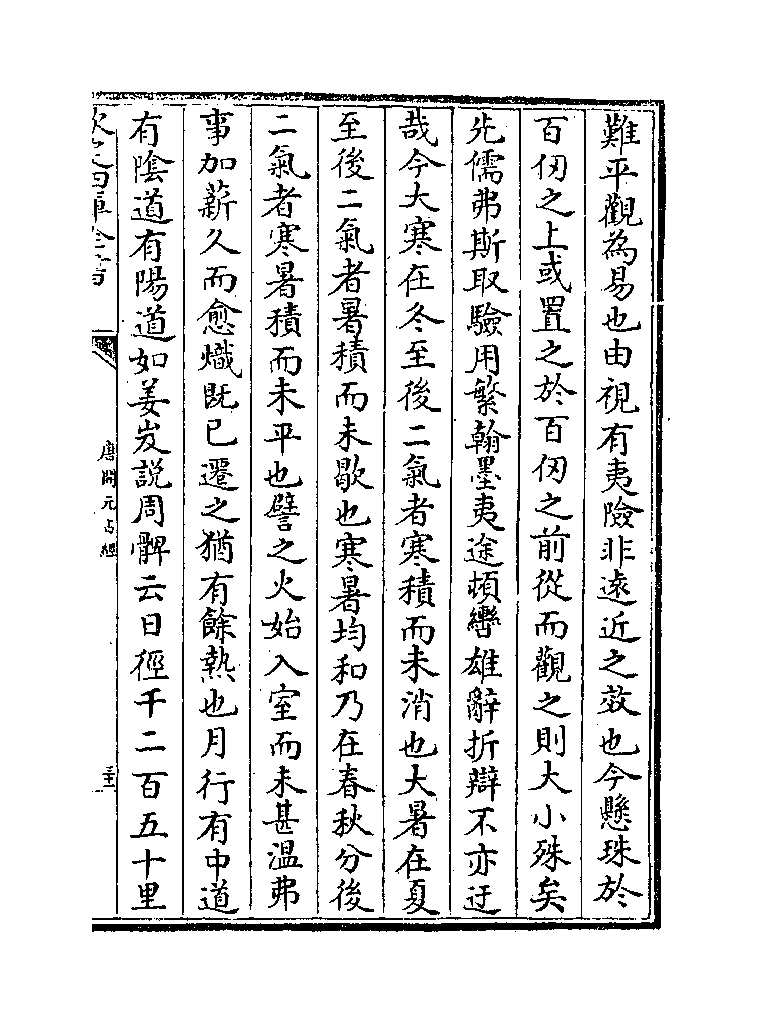 難平觀為易也由視有夷險非逺近之效也今懸珠於
百仞之上或置之於百仞之前從而觀之則大小殊矣
先儒弗斯取驗用繁翰墨夷途頓轡雄辭折辯不亦迂
哉今大寒在冬至後二氣者寒積而未消也大暑在夏
至後二氣者暑積而未歇也寒暑均和乃在春秋分後
二氣者寒暑積而未平也譬之火始入室而未甚温弗
事加薪久而愈熾既已遷之猶有餘熱也月行有中道
有陰道有陽道如姜岌説周髀云日徑千二百五十里
欽定四庫全書
唐開元占經